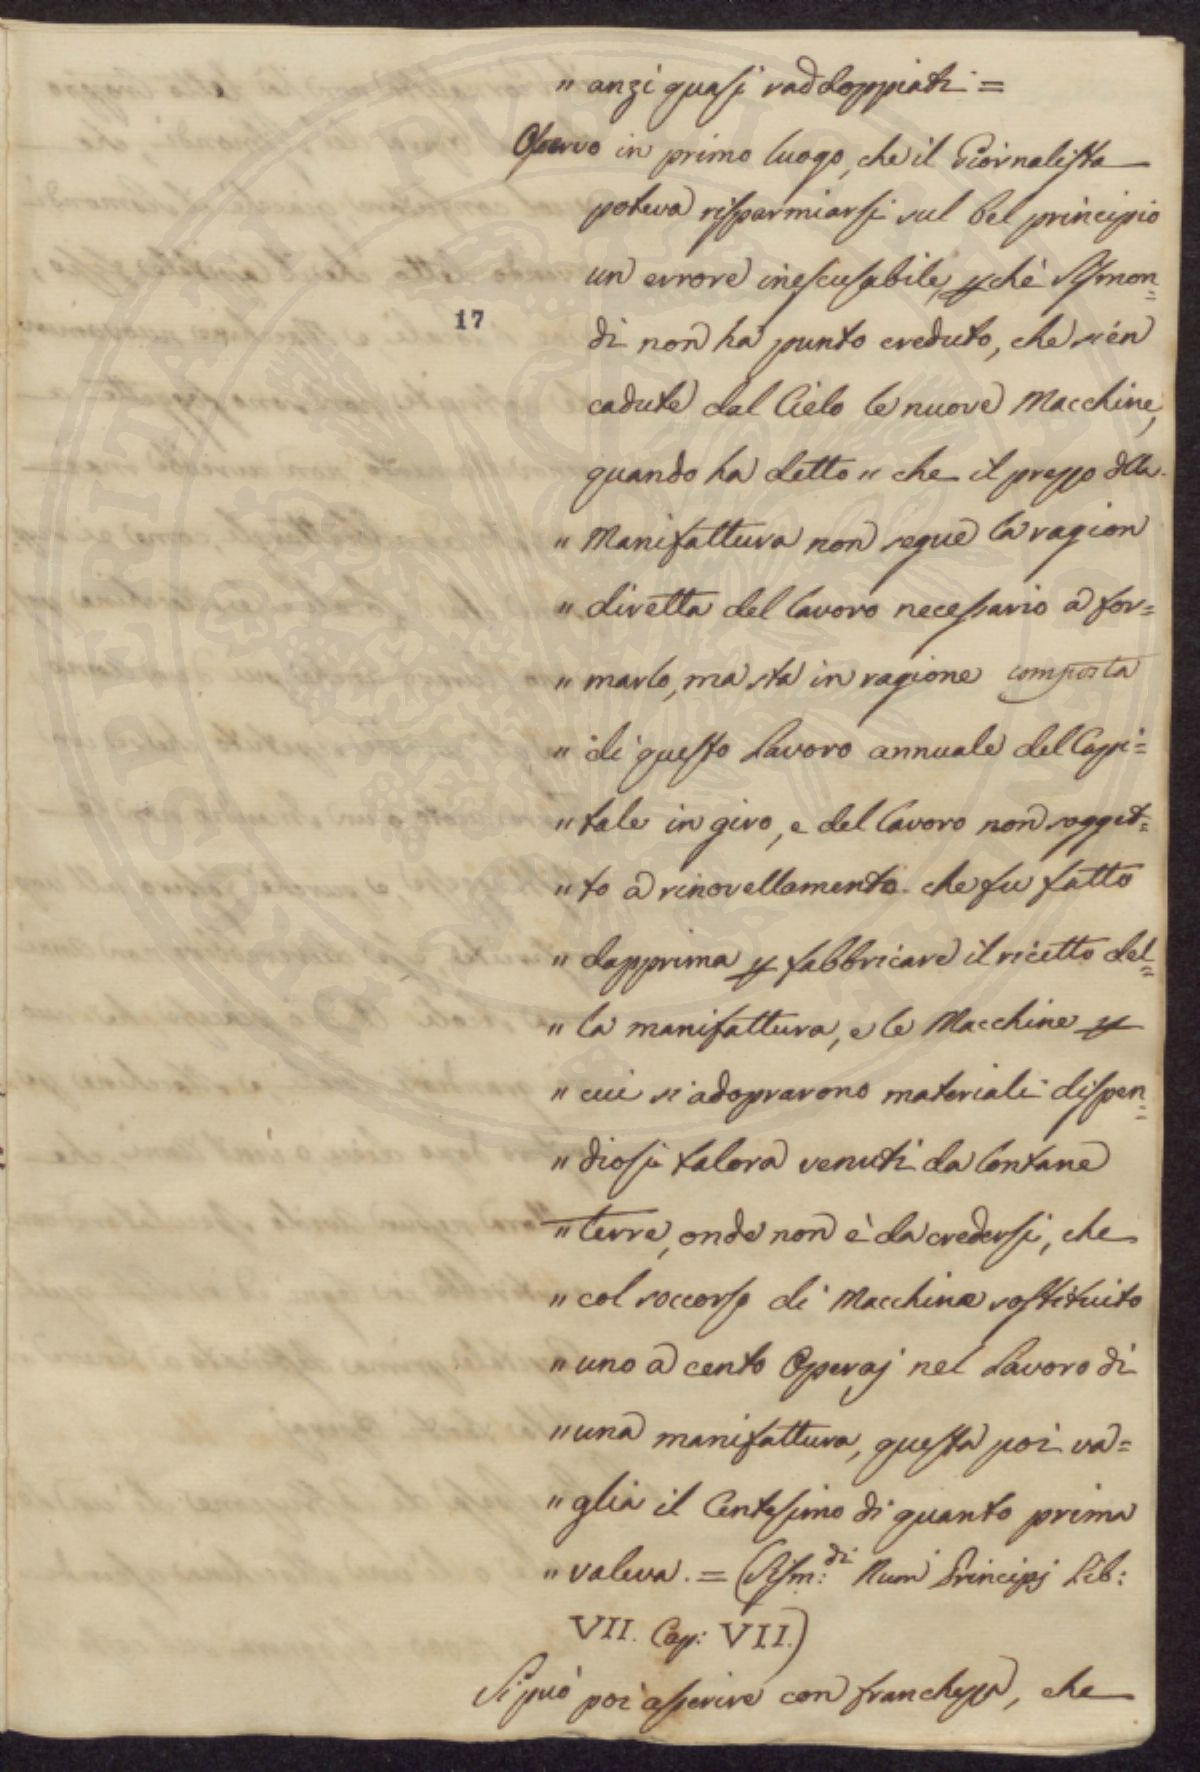 " anzi quasi raddoppiati =
Osservo in primo luogo, che il Giornalista
poteva risparmiarsi sul bel principio
un errore inescusabile, pchè Sismon=
17
di non ha punto creduto, che sién
cadute dal Cielo le nuove Macchine,
quando ha detto " che il prezzo dlla
" Manifattura non segue la ragion
" diretta del lavoro necessario a for=
" marlo, ma sta in ragione composta
" di questo Lavoro annuale del Capi=
" tale in giro, e del lavoro non sogget=
" to a rinovellamento che fu fatto
" dapprima p fabbricare il ricetto del=
" la manifattura, e le Macchine p
" cui si adoprarono materiali dispen=
" diosi talora venuti da lontane
" terre, onde non è da credersi, che
" col soccorso di Macchine sostituito
" uno a cento Operaj nel Lavoro di
" una manifattura, questa poi va=
" glia il Centesimo di quanto prima
" valeva. = (Sism:di Nuovi Principj Lib:
VII. Cap: VII.)
Si può poi asserire con franchezza, che